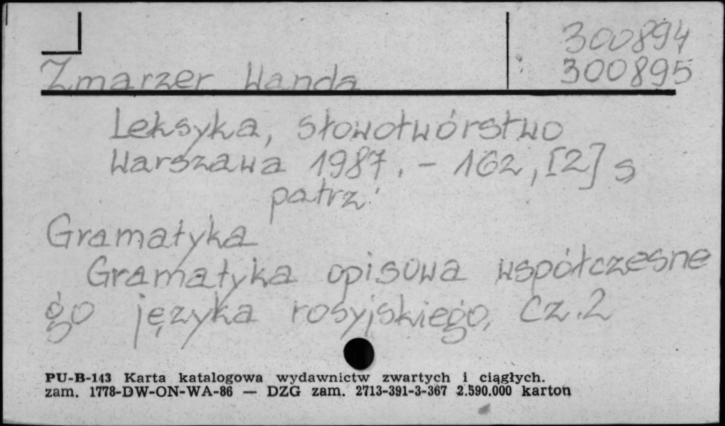 300894
Zmarzer Wanda 300895
Leksyka, słowotwórstwo
Warszawa 1987. - 162, [2] s
patrz:
Gramatyka
Gramatyka opisowa współczesne
go języka rosyjskiego, Cz. 2
PU-B-143 Karta katalogowa wydawnictw zwartych i ciągłych.
zam. 1778-DW-ON-WA-86 — DZG zam. 2713-391-3-367 2.590.000 karton